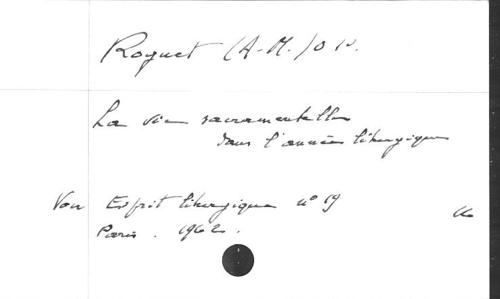 Roguet (A-M.) O P.
La vie sacramentelle
dans l'année liturgique
Voir Esprit liturgique n° 19
Paris. 1962.